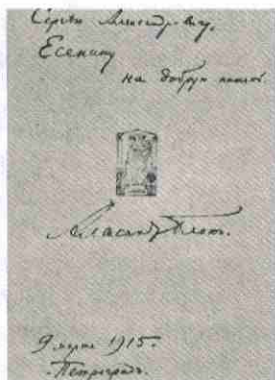 Сергею Александровичу
Есенину
на добрую память
Александр Блок.
9 марта 1915.
Петроград.